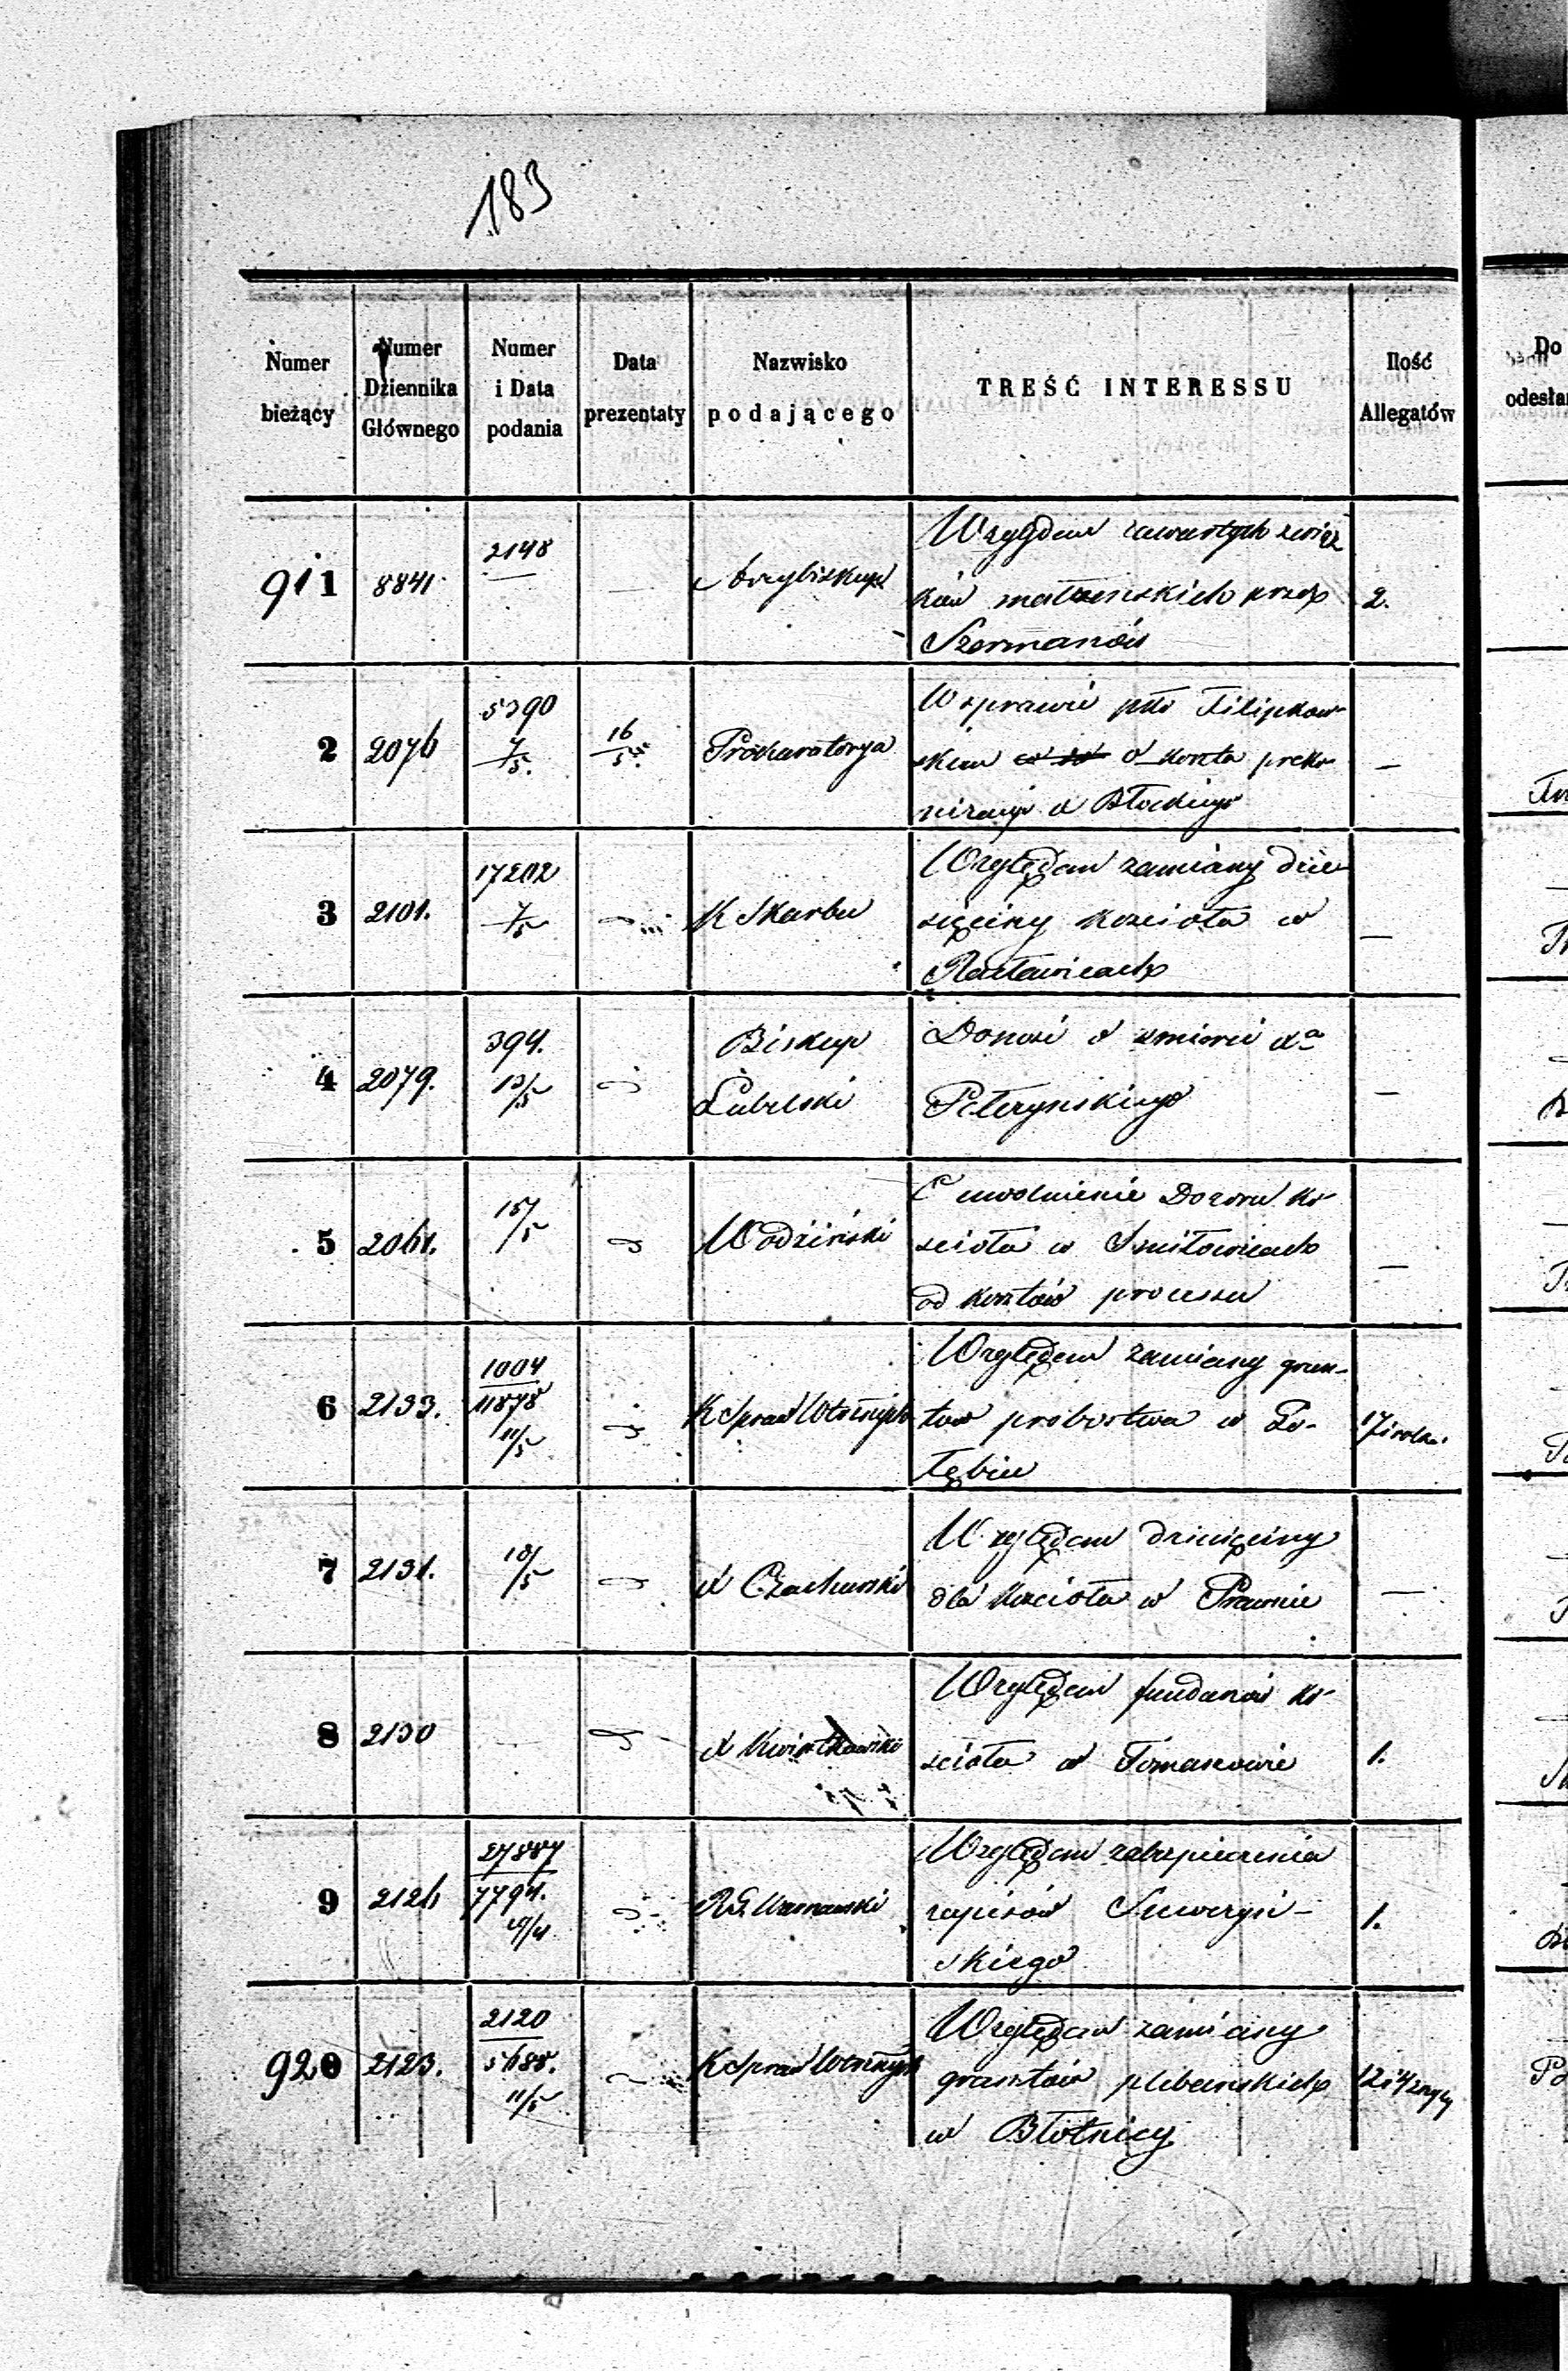 183
Numer bieżący | Numer Dziennika Głównego | Numer i Data podania | Data prezentaty | Nazwisko podającego | TREŚĆ INTERESSU | Ilość Allegatów
Do
odesła
911 8841 2148 — Arcybiskup
Względem zawartych związ
ków małżeńskich przez 2.
Szermanów
2 2076 5390 7/5. 16/5. Prokuratorya
W sprawie pko Filipkow
skiem o koszta preko
nizacyi X Błockiego
3 2101. 17202 7/5 K Skarbu
Względem zamiany dzie
sięciny kościoła w —
Racławicach
4 2079. 394. 13/5 Biskup
Lubelski
Donosi o śmierci Xa
Peteryńskiego —
5 2061. 15/5 Wodziński
O uwolnienie Dozoru ko
ścioła w Smiłowicach —
od kosztów processu
6 2133. 1004 11878 11/5 K Spraw Wewnętrznych
Względem zamiany grun-
tów probostwa w Go-
łębiu
7 2131. 18/5 X Czachurski
Względem dziesięciny
dla kościoła w Prawnie —
8 2130 X Kwiatkowski
Względem fundanów ko
ścioła w Tomaszowie 1.
9 2126 27887 7794. RG. Warszawski
Względem zabezpieczenia
zapisów Suweryń- 1.
skiego
920 2123. 2120 5688. 11/5 K Spraw Wewnętrznych
Względem zamiany
gruntów plebańskich
w Błotnicy